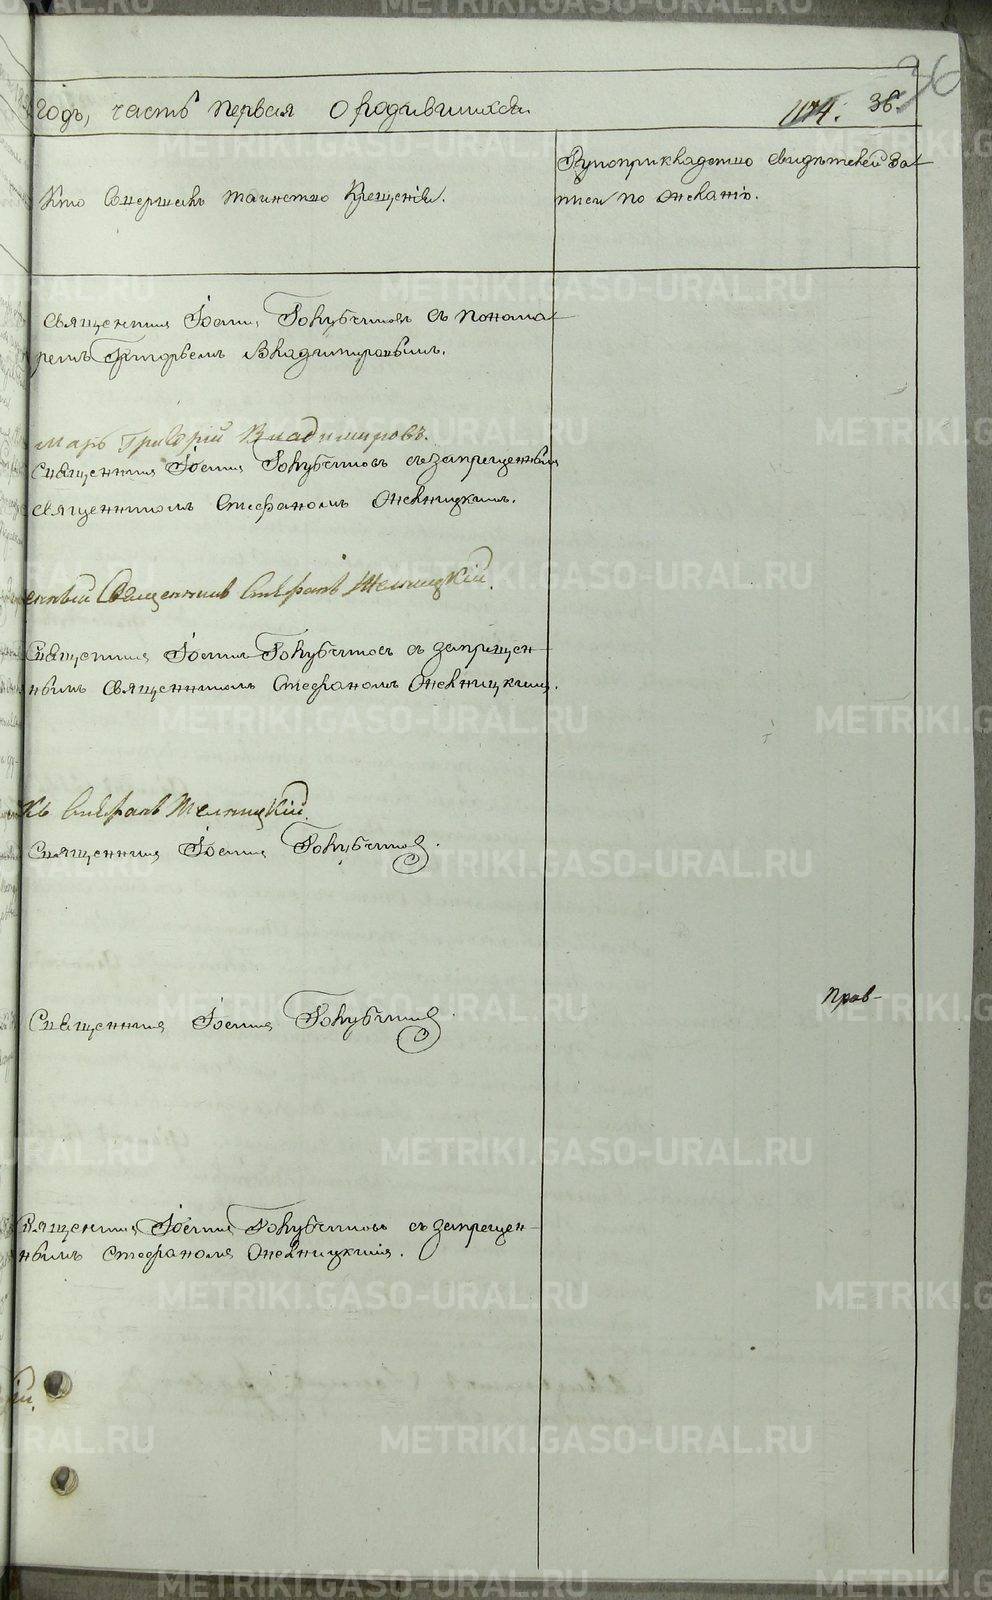 36
годъ, часть первая о родившихся
174. 36.
Кто совершалъ таинство Крещенія.
Рукоприкладство свидѣтелей за-
писи по желанію.
Священникъ Іоаннъ Голубчиковъ съ понома-
ремъ Григорьемъ Владимировымъ.
марь Григорій Владимировъ.
Священникъ Іоаннъ Голубчиковъ съ запрещеннымъ
священникомъ Стефаномъ Желницкимъ.
енный Священникъ Стефанъ Желницкій.
Священникъ Іоаннъ Голубчиковъ съ запрещен-
нымъ священникомъ Стефаномъ Желницкимъ.
къ Стефанъ Желницкій.
Священникъ Іоаннъ Голубчиковъ.
Прав-
Священникъ Іоаннъ Голубчиковъ.
Священникъ Іоаннъ Голубчиковъ съ запрещен-
нымъ Стефаномъ Желницкимъ.
METRIKI.GASO-URAL.RU